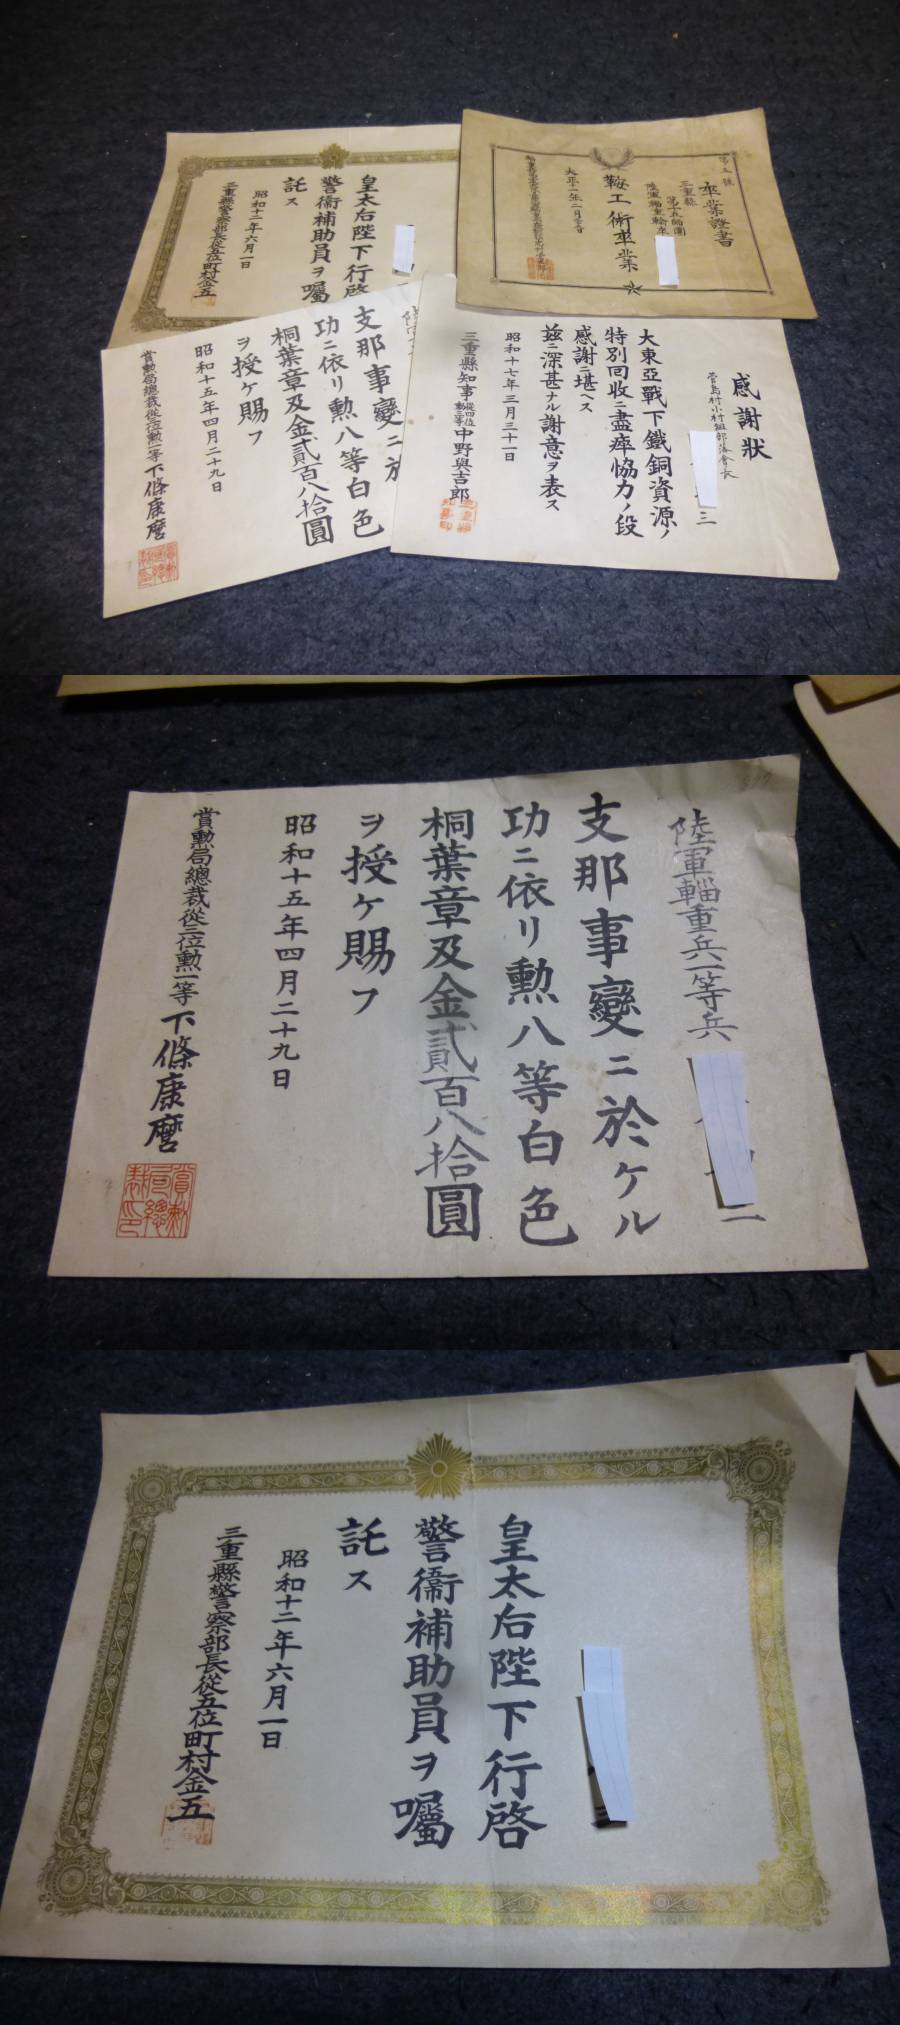 卒業證書
三重縣
第十五師團
鞍工術卒業
皇太后陛下行啓
警衞補助員ヲ囑
託ス
昭和十二年六月一日
三重縣警察部長從五位町村金五
感謝狀
菅島村小村組部落會長
三
大東亞戰下鐵銅資源ノ
特別回收ニ盡瘁協力ノ段
感謝ニ堪ヘス
玆ニ深甚ナル謝意ヲ表ス
昭和十七年三月三十一日
三重縣知事從四位勳三等中野與吉郎
支那事變ニ於
功ニ依リ勲八等白色
桐葉章及金貳百八拾圓
ヲ授ケ賜フ
昭和十五年四月二十九日
賞勲局總裁從三位勲一等下條康麿
陸軍輜重兵一等兵
支那事變ニ於ケル
功ニ依リ勲八等白色
桐葉章及金貳百八拾圓
ヲ授ケ賜フ
昭和十五年四月二十九日
賞勲局總裁從三位勲一等下條康麿
皇太后陛下行啓
警衞補助員ヲ囑
託ス
昭和十二年六月一日
三重縣警察部長從五位町村金五